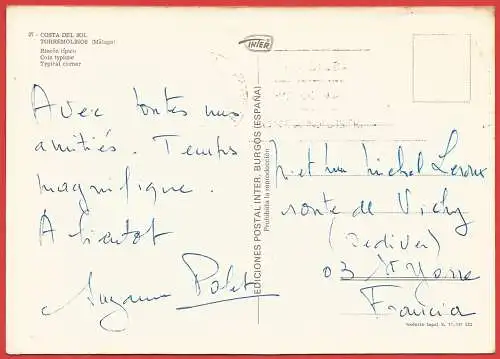 27 - COSTA DEL SOL
TORREMOLINOS (Málaga)
Rincón típico
Coin typique
Typical corner
INTER
Avec toutes nos
amitiés. Temps
magnifique.
A bientôt
Suzanne
EDICIONES POSTAL INTER. BURGOS (ESPAÑA)
Prohibida la reproducción
M. et Mme Michel Leroux
route de Vichy
(Bediver)
03
Francia
Depósito legal B.